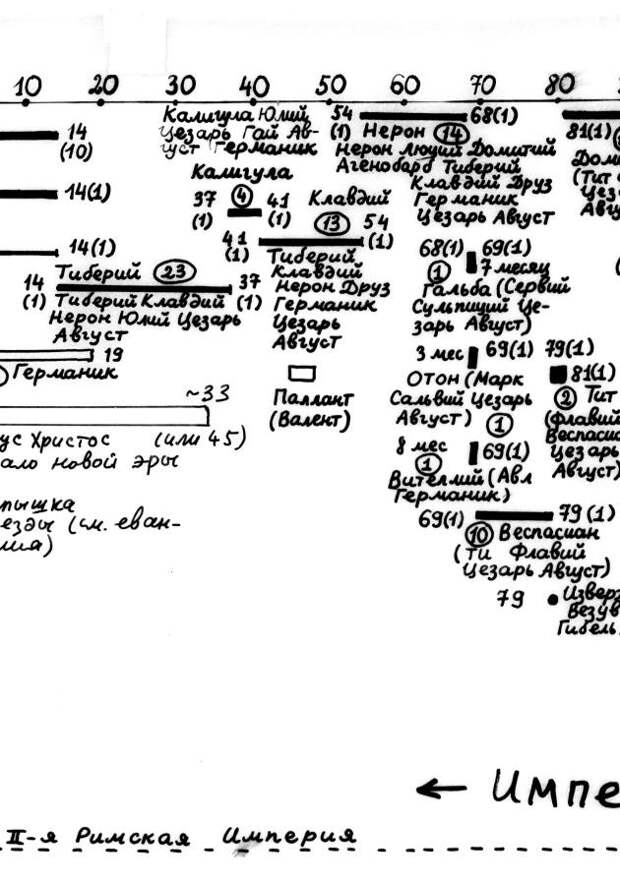 10 20 30 40 50 60 70 80
Калигула Юлий
Цезарь Гай Ав-
густ Германик
Калигула
37 (4) 41
(1) (1)
14
(10)
14(1)
14(1)
Тиберий (23)
14 37
(1) Тиберий Клавдий (1)
Нерон Юлий Цезарь
Август
19
Германик
~33
ус Христос (или 45)
ало новой эры
пышка
езды (см. еван-
лия)
54 68(1)
(1) Нерон (14)
Нерон Люций Домитий
Агенобарб Тиберий
Клавдий Друз
Германик
Цезарь Август
Клавдий
(13) 54
41 (1)
(1) Тиберий
Клавдий
Нерон Друз
Германик
Цезарь
Август
Паллант
(Валент)
68(1) 69(1)
(1) 7 месяц
Гальба (Сервий
Сульпиций Це-
зарь Август)
3 мес 69(1)
Отон (Марк
Сальвий Цезарь
Август) (1)
8 мес
(1) 69(1)
Вителлий (Авл
Германик)
69(1) 79(1)
(10) Веспасиан
(Ти Флавий
Цезарь Август)
79 Изверж
Везув
Гибель
81(1)
Доми
(Тит
Цез
Авгу
79(1)
81(1)
(2) Тит
(Флавий
Веспасиа
Цезарь
Август)
← Импе
II-я Римская Империя